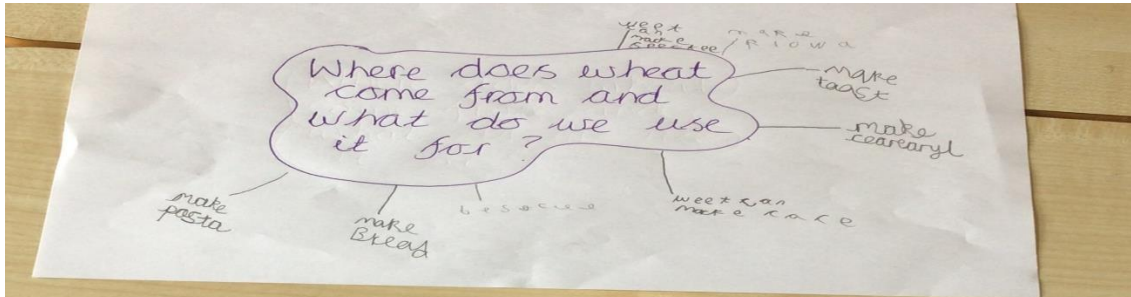 Where does wheat
come from and
what do we use
it for?
weet
can
make
make
make
taast
make
cearearyl
weet can
make cake
make
Bread
make
pasta